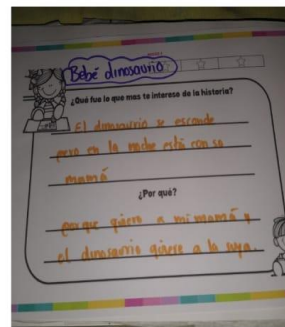 Bebé dinosaurio
¿Qué fue lo que mas te intereso de la historia?
El dinosaurio se esconde
pero en la noche está con su
mamá
¿Por qué?
porque quiero a mi mamá y
el dinosaurio quiere a la suya.